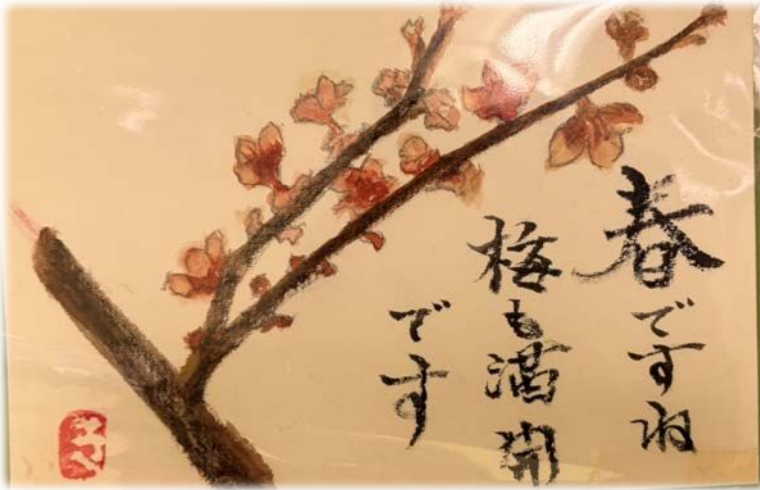 春ですね
梅も満開
です